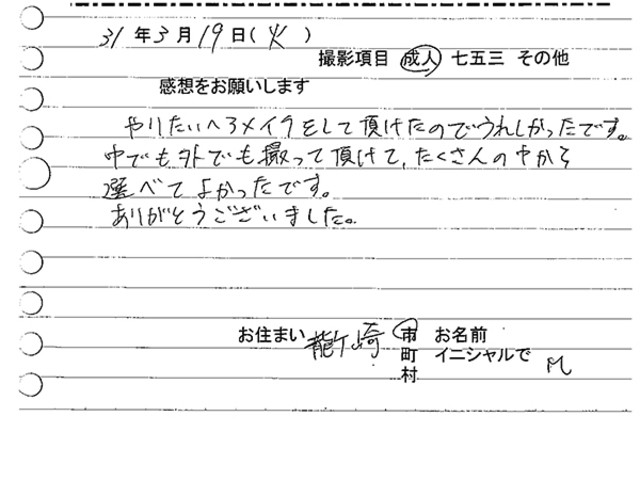 31年3月19日(火)
撮影項目 成人 七五三 その他
感想をお願いします
やりたいヘアメイクをして頂けたのでうれしかったです。
中でも外でも撮って頂けて、たくさんの中から
選べてよかったです。
ありがとうございました。
お住まい 龍ケ崎 市 お名前
町 イニシャルで
村